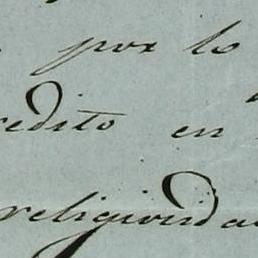 por lo
redito en
religiosida